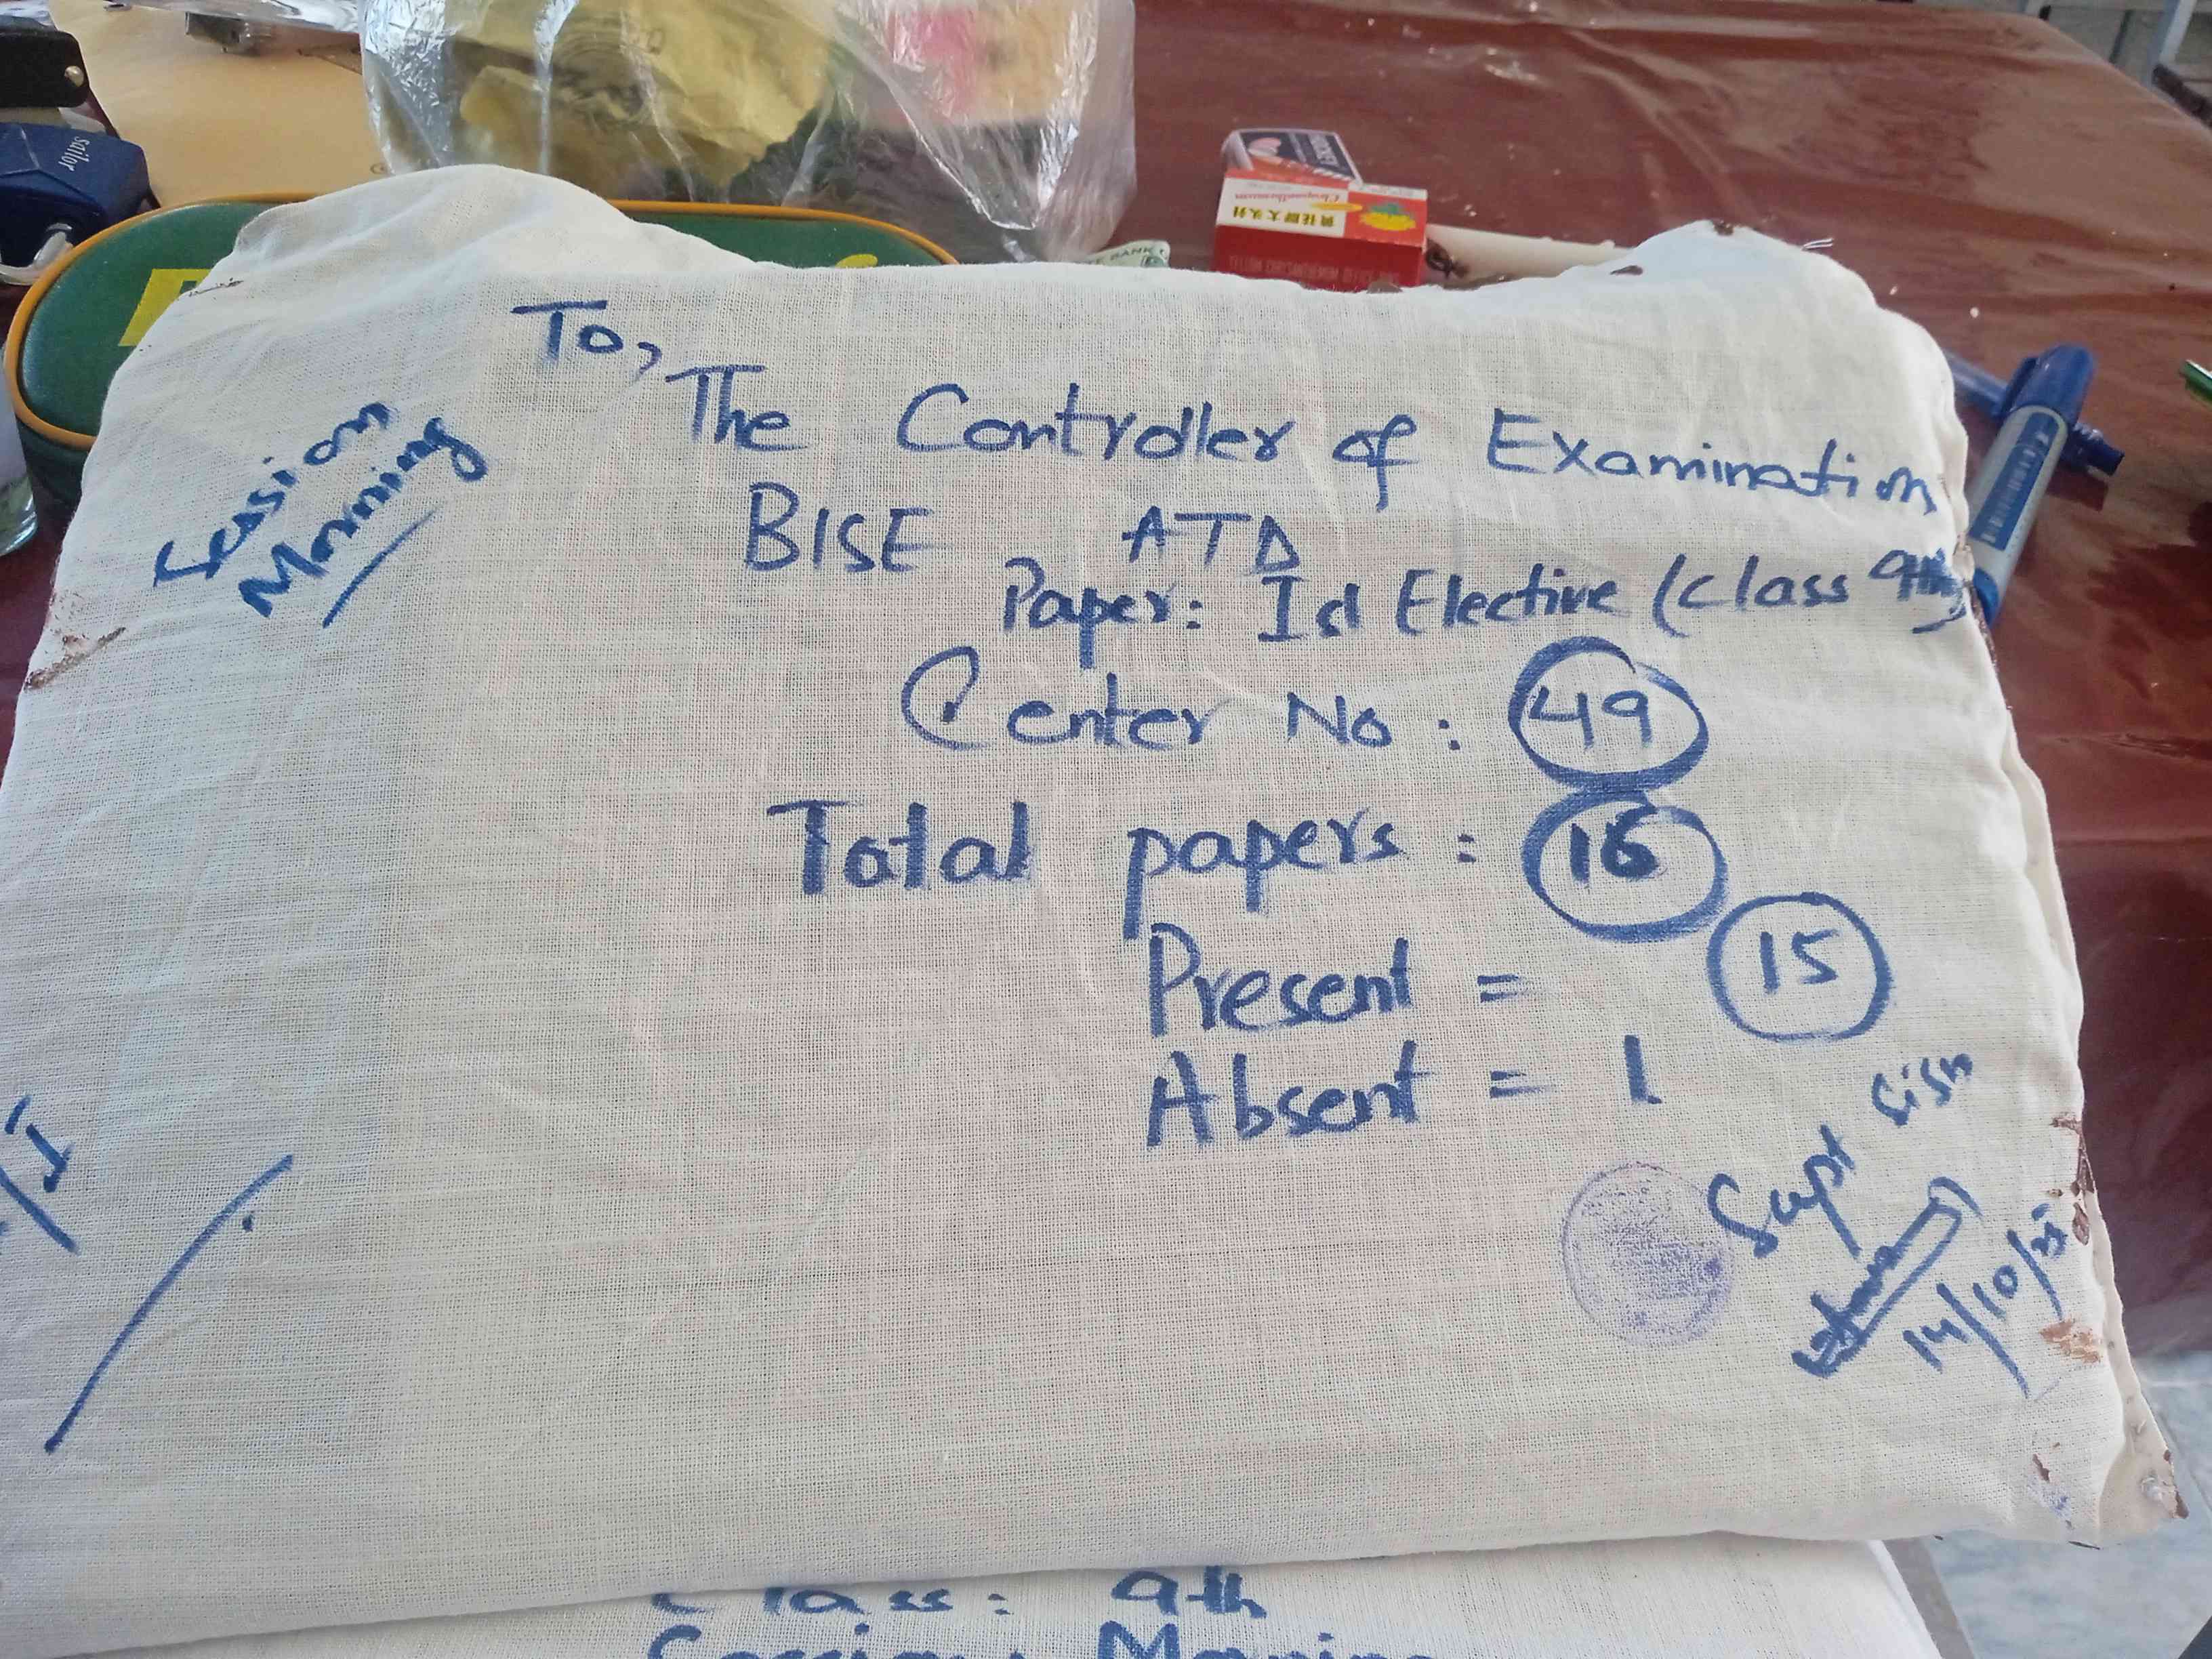 To,
The Controller of Examination
BISE ATD
Paper: Isl Elective (class 9th)
Center No : 49
Total papers : 16
Present = 15
Absent = 1
Session
Morning
Supt Sign
14/10/25
/I
Class: 9th
Session: Morning
sailor
BANK
Chrysanthemum